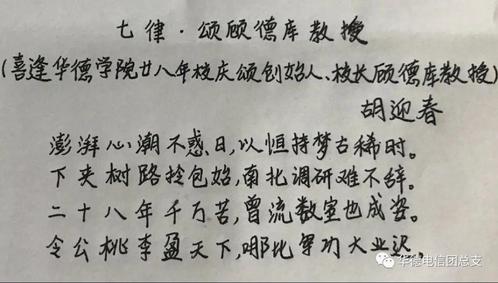 七律·颂顾德库教授
(喜逢华德学院廿八年校庆颂创始人、校长顾德库教授)
胡迎春
澎湃心潮不惑日,以恒持梦古稀时。
下夹树路拎包始,南北调研难不辞。
二十八年千万苦,曾流数室也成姿。
令公桃李盈天下,哪比军功大业迟。
华德电信团总支